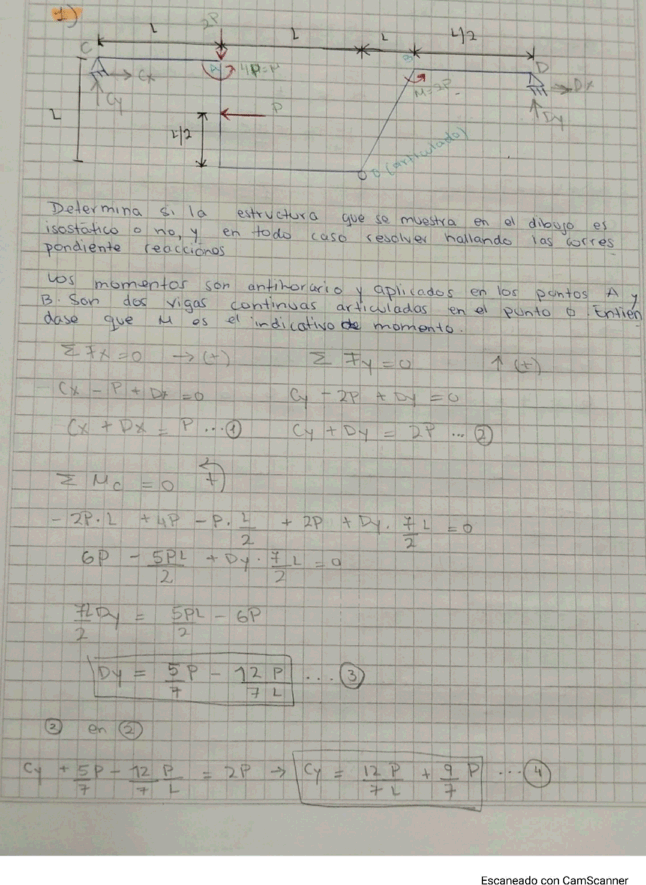 1)
L L L L/2
2P
C A B D
Cx 4P=P M=2P Dx
Cy P Dy
L L/2
O (articulado)
Determina si la estructura que se muestra en el dibujo es
isostático o no, y en todo caso resolver hallando las corres
pondiente reacciones
Los momentos son antihorario y aplicados en los pontos A y
B. Son dos vigas continuas articulados en el punto O Entien
dase que M es el indicativo de momento.
Σ Fx = 0 → (+) Σ Fy = 0 ↑ (+)
Cx - P + Dx = 0 Cy - 2P + Dy = 0
Cx + Dx = P ... ① Cy + Dy = 2P ... ②
Σ Mc = 0 +
- 2P·L + 4P - P·L/2 + 2P + Dy·7/2 L = 0
6P - 5PL/2 + Dy·7/2 L = 0
7LDy/2 = 5PL/2 - 6P
Dy = 5/7 P - 12/7 P/L ... ③
② en ②
Cy + 5P/7 - 12/7 P/L = 2P → Cy = 12P/7L + 9/7 P ... ④
Escaneado con CamScanner